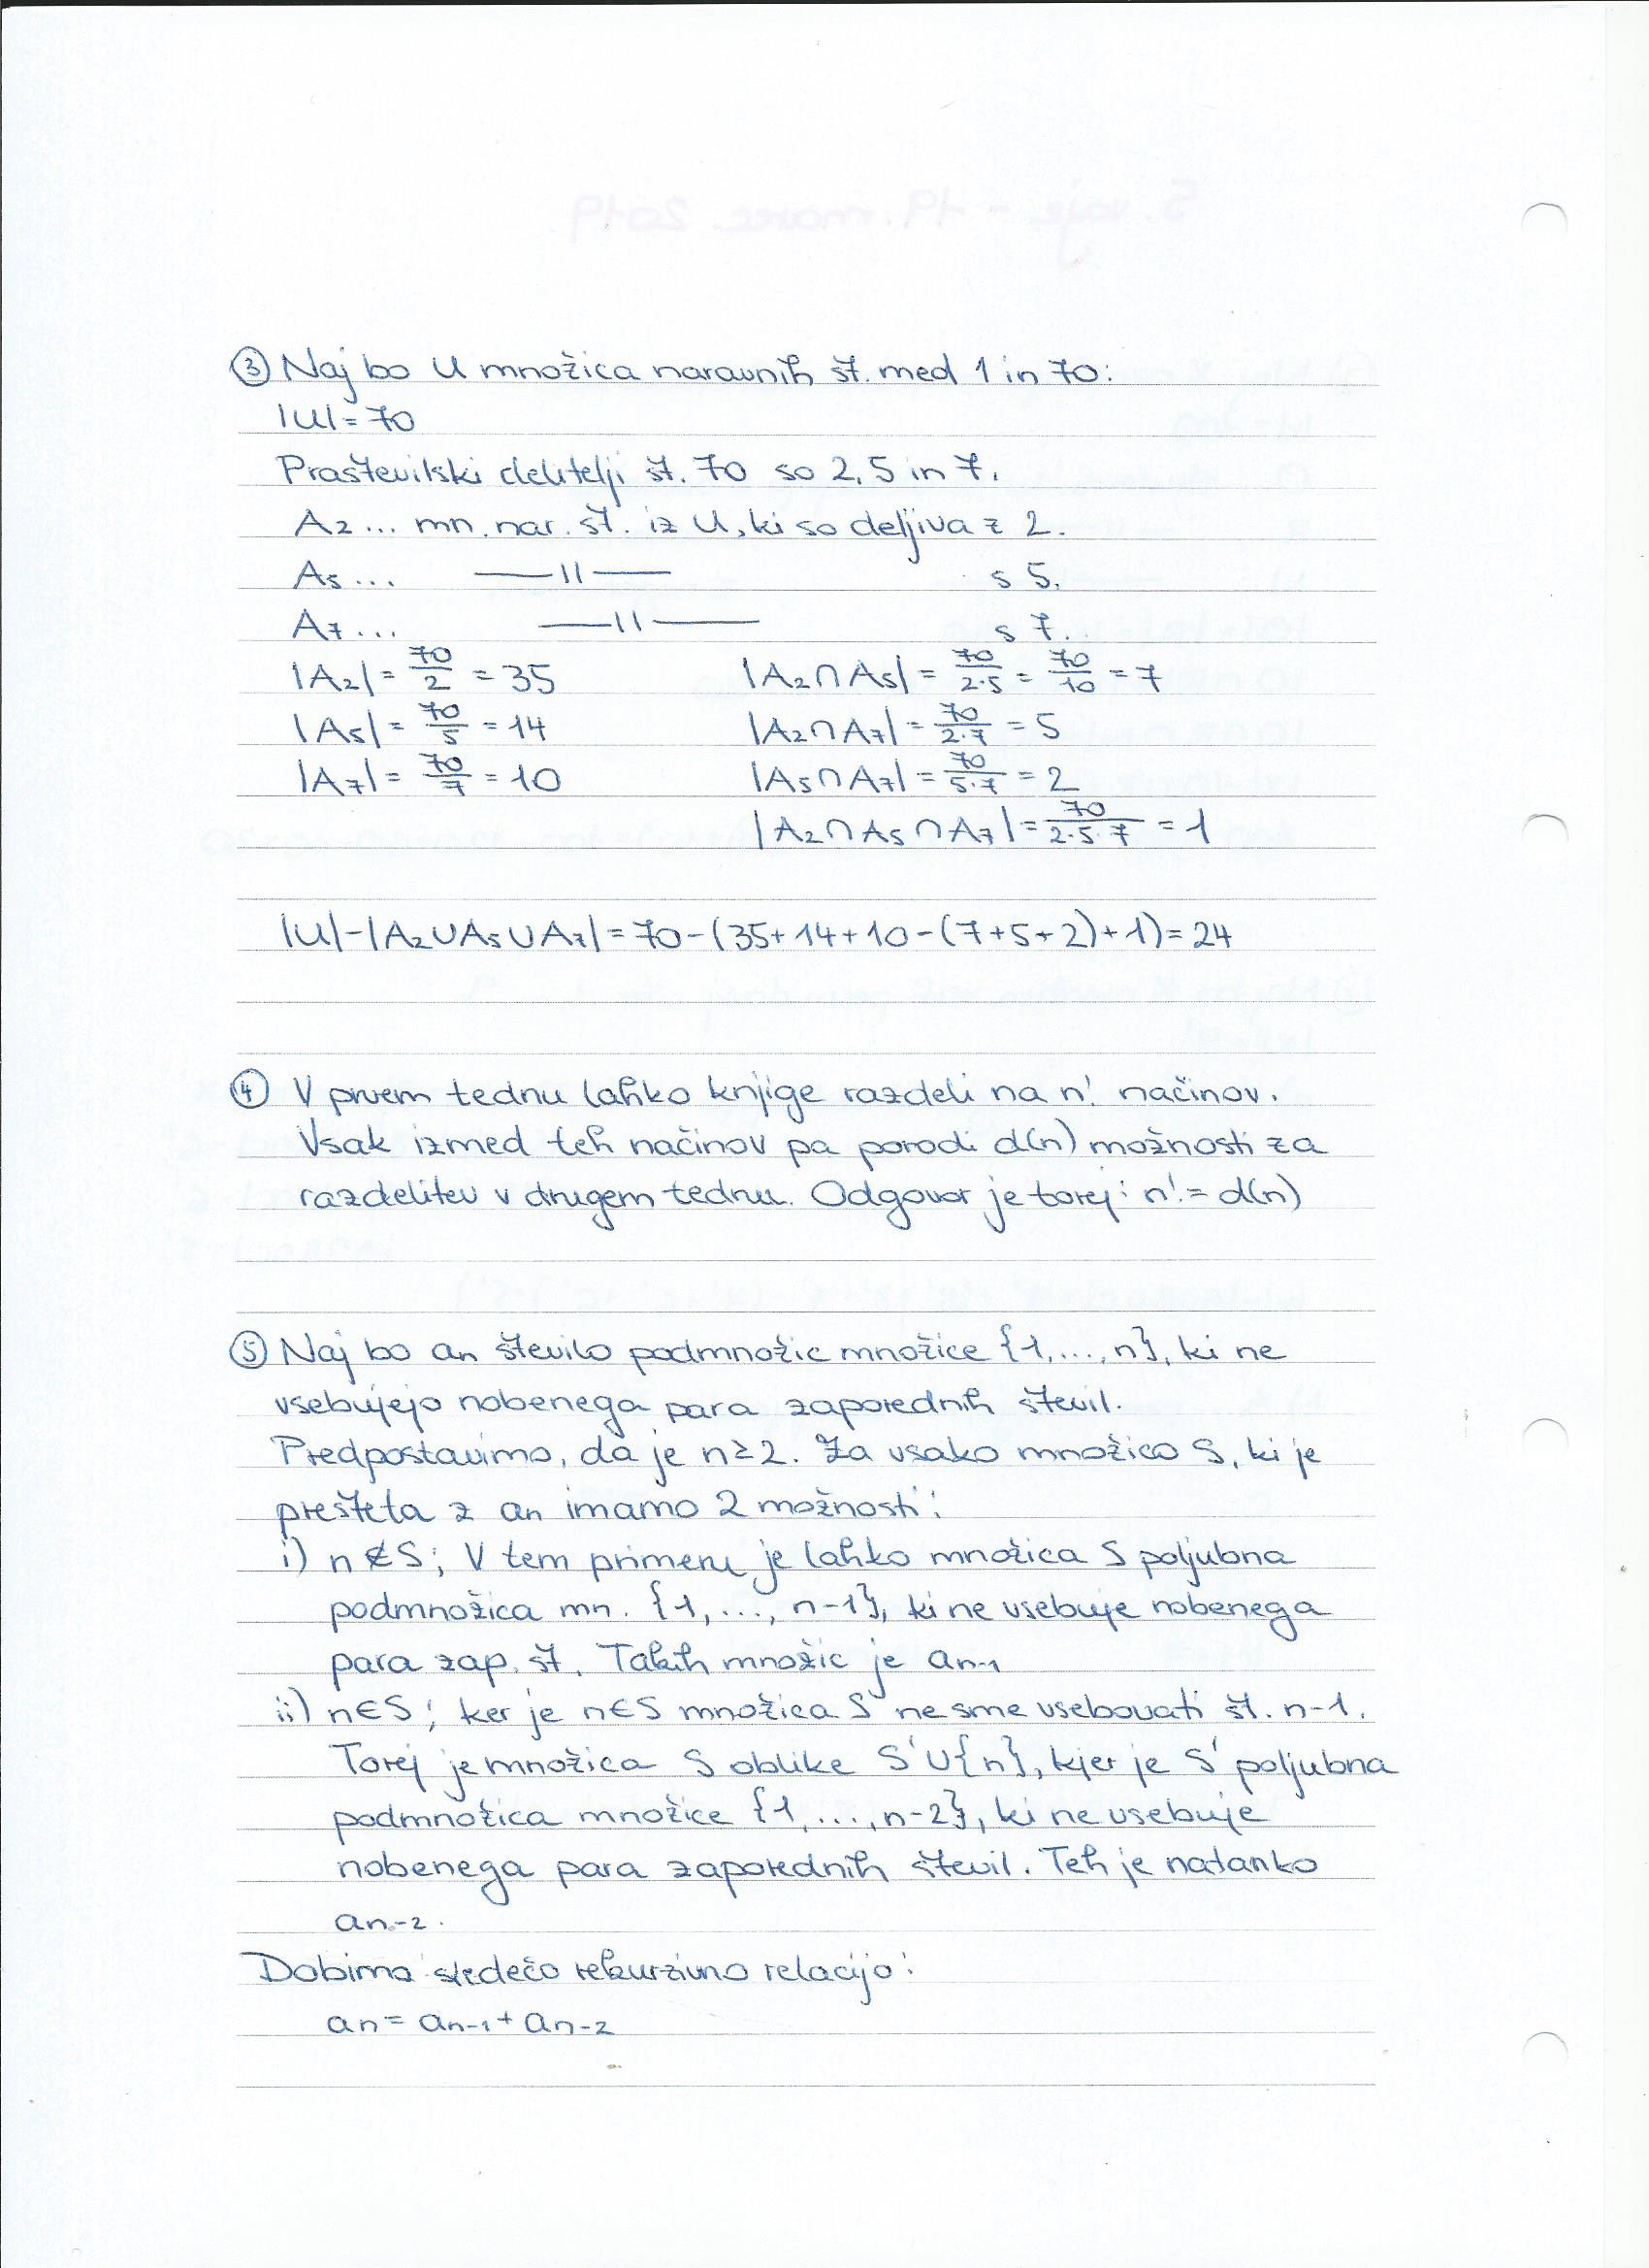 ③ Naj bo U množica naravnih št. med 1 in 70:
|U| = 70
Praštevilski delitelji št. 70 so 2, 5 in 7.
A2 ... mn. nar. št. iz U, ki so deljiva z 2.
A5 ... —||— s 5.
A7 ... —||— s 7.
|A2| = 70/2 = 35 |A2 ∩ A5| = 70/2·5 = 70/10 = 7
|A5| = 70/5 = 14 |A2 ∩ A7| = 70/2·7 = 5
|A7| = 70/7 = 10 |A5 ∩ A7| = 70/5·7 = 2
|A2 ∩ A5 ∩ A7| = 70/2·5·7 = 1
|U| - |A2 ∪ A5 ∪ A7| = 70 - (35 + 14 + 10 - (7 + 5 + 2) + 1) = 24
④ V prvem tednu lahko knjige razdeli na n! načinov.
Vsak izmed teh načinov pa porodi d(n) možnosti za
razdelitev v drugem tednu. Odgovor je torej: n! = d(n)
⑤ Naj bo an število podmnožic množice {1, ..., n}, ki ne
vsebujejo nobenega para zaporednih števil.
Predpostavimo, da je n ≥ 2. Za vsako množico S, ki je
prešteta z an imamo 2 možnosti:
i) n ∉ S; V tem primeru je lahko množica S poljubna
podmnožica mn. {1, ..., n-1}, ki ne vsebuje nobenega
para zap. št. Takih množic je an-1
ii) n ∈ S; ker je n ∈ S množica S ne sme vsebovati št. n-1.
Torej je množica S oblike S' ∪ {n}, kjer je S' poljubna
podmnožica množice {1, ..., n-2}, ki ne vsebuje
nobenega para zaporednih števil. Teh je natanko
an-2.
Dobimo sledečo rekurzivno relacijo:
an = an-1 + an-2